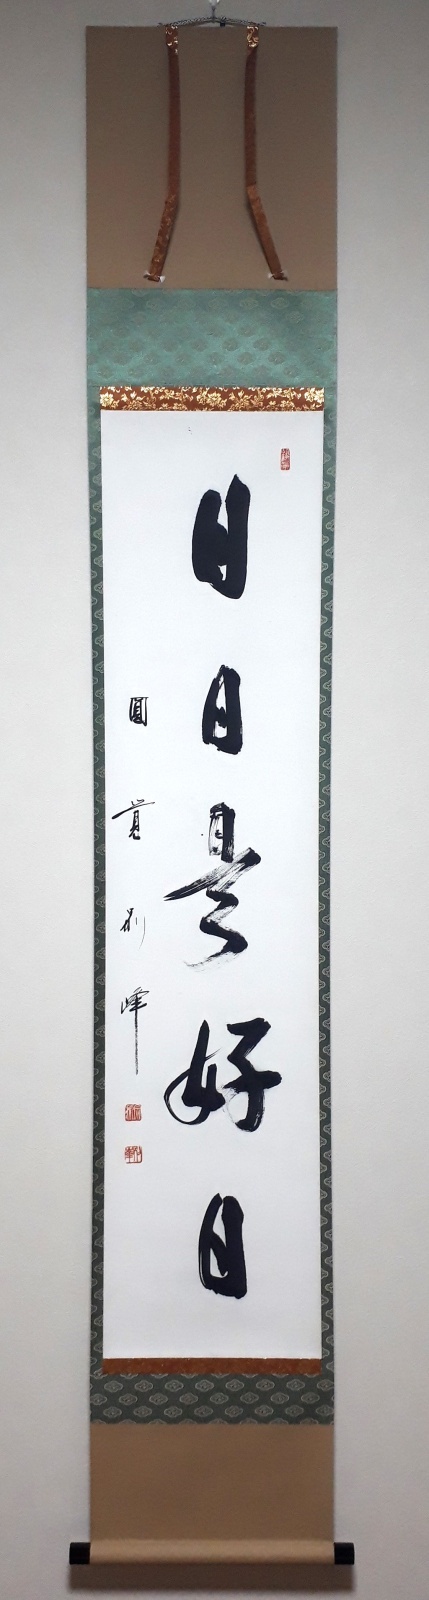 日日是好日
圓覚別峰